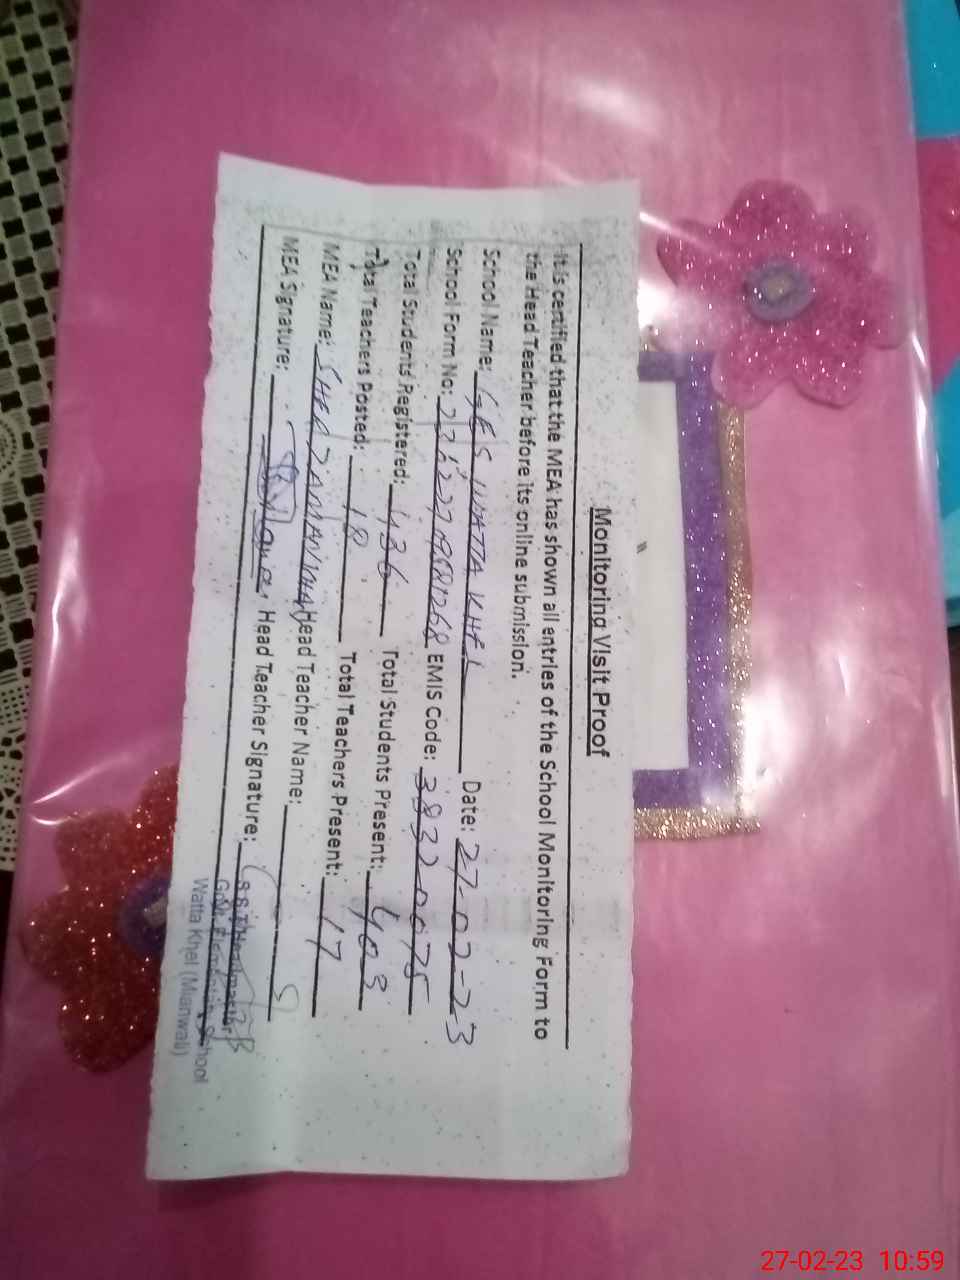 Monitoring Visit Proof
It is certified that the MEA has shown all entries of the School Monitoring Form to
the Head Teacher before its online submission.
School Name: GES WATTA KHEL Date: 27-02-23
School Form No: EMIS Code: 38320075
Total Students Registered: 436 Total Students Present: 403
Total Teachers Posted: 18 Total Teachers Present: 17
MEA Name: SHER Head Teacher Name:
MEA Signature: Head Teacher Signature:
S.S.T/Headmaster
Govt. Elementary School
Watta Khel (Mianwali)
27-02-23 10:59